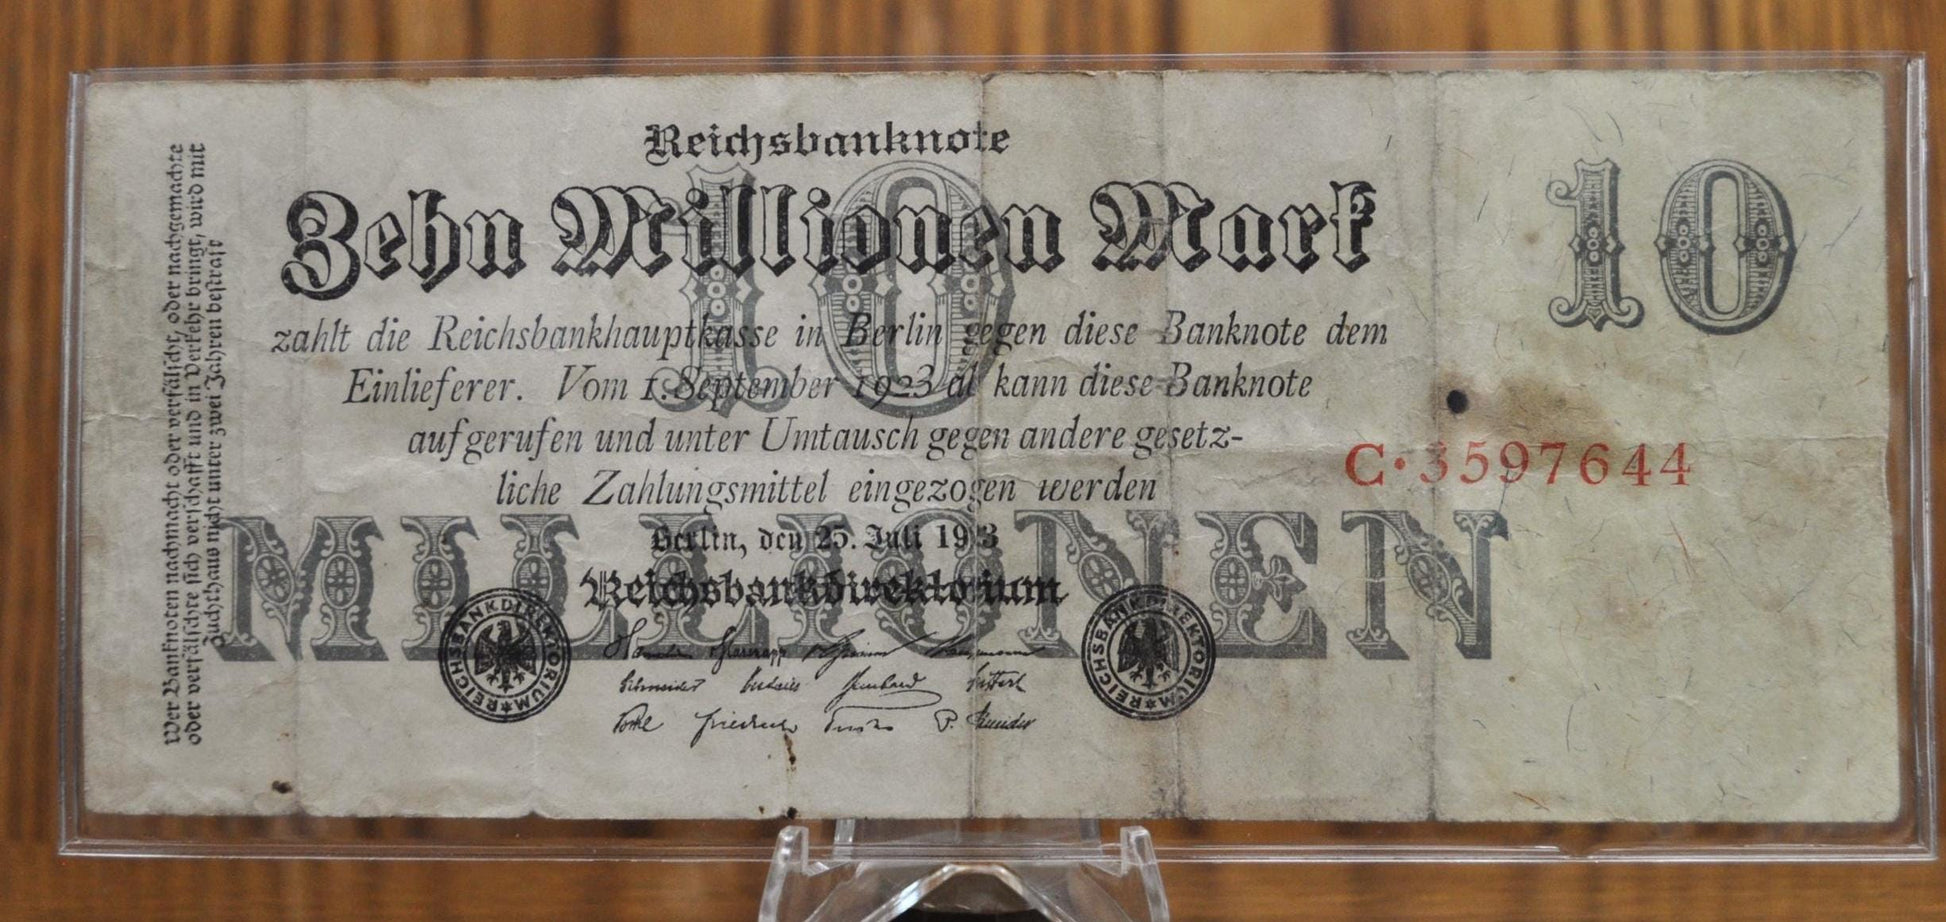 Reichsbanknote
Zehn Millionen Mark
10
10
zahlt die Reichsbankhauptkasse in Berlin gegen diese Banknote dem
Einlieferer. Vom 1. September 1923 ab kann diese Banknote
aufgerufen und unter Umtausch gegen andere gesetz-
liche Zahlungsmittel eingezogen werden
C·3597644
MILLIONEN
Berlin, den 25. Juli 1923
Reichsbankdirektorium
REICHSBANKDIREKTORIUM
REICHSBANKDIREKTORIUM
Schneider
Friedrich P. Schneider
Wer Banknoten nachmacht oder verfälscht, oder nachgemachte
oder verfälschte sich verschafft und in Verkehr bringt, wird mit
Zuchthaus nicht unter zwei Jahren bestraft